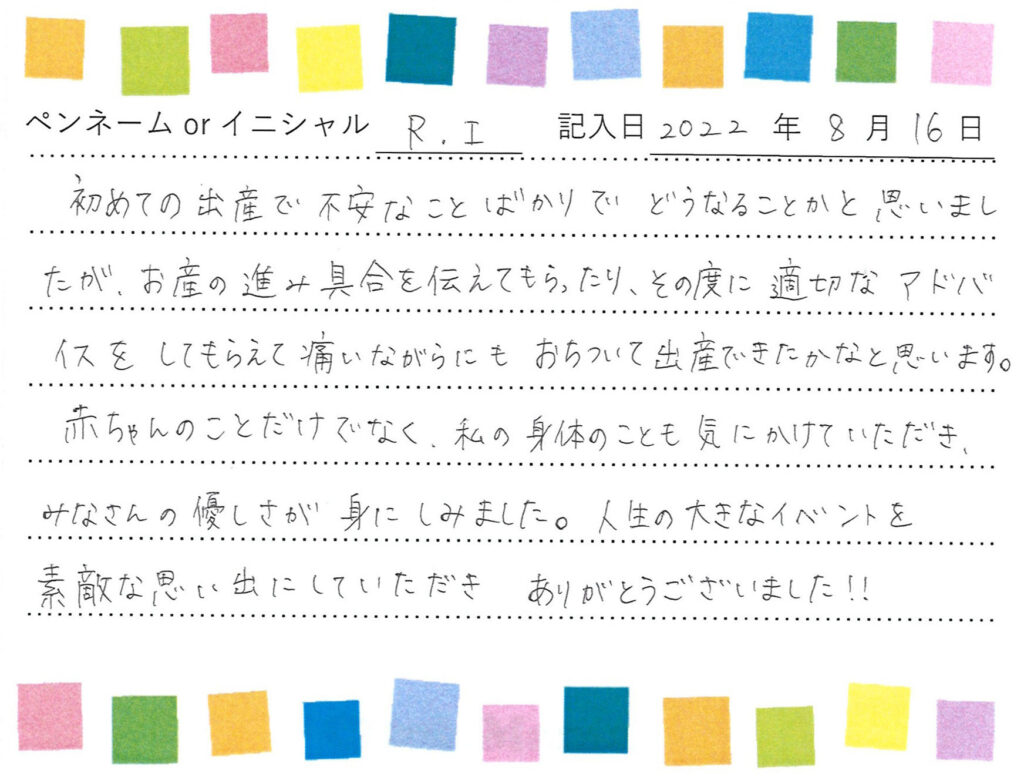 ペンネーム or イニシャル R.I 記入日 2022 年 8 月 16 日
初めての出産で不安なことばかりでどうなることかと思いまし
たが、お産の進み具合を伝えてもらったり、その度に適切なアドバ
イスをしてもらえて痛いながらにもおちついて出産できたかなと思います。
赤ちゃんのことだけでなく、私の身体のことも気にかけていただき、
みなさんの優しさが身にしみました。人生の大きなイベントを
素敵な思い出にしていただき ありがとうございました!!